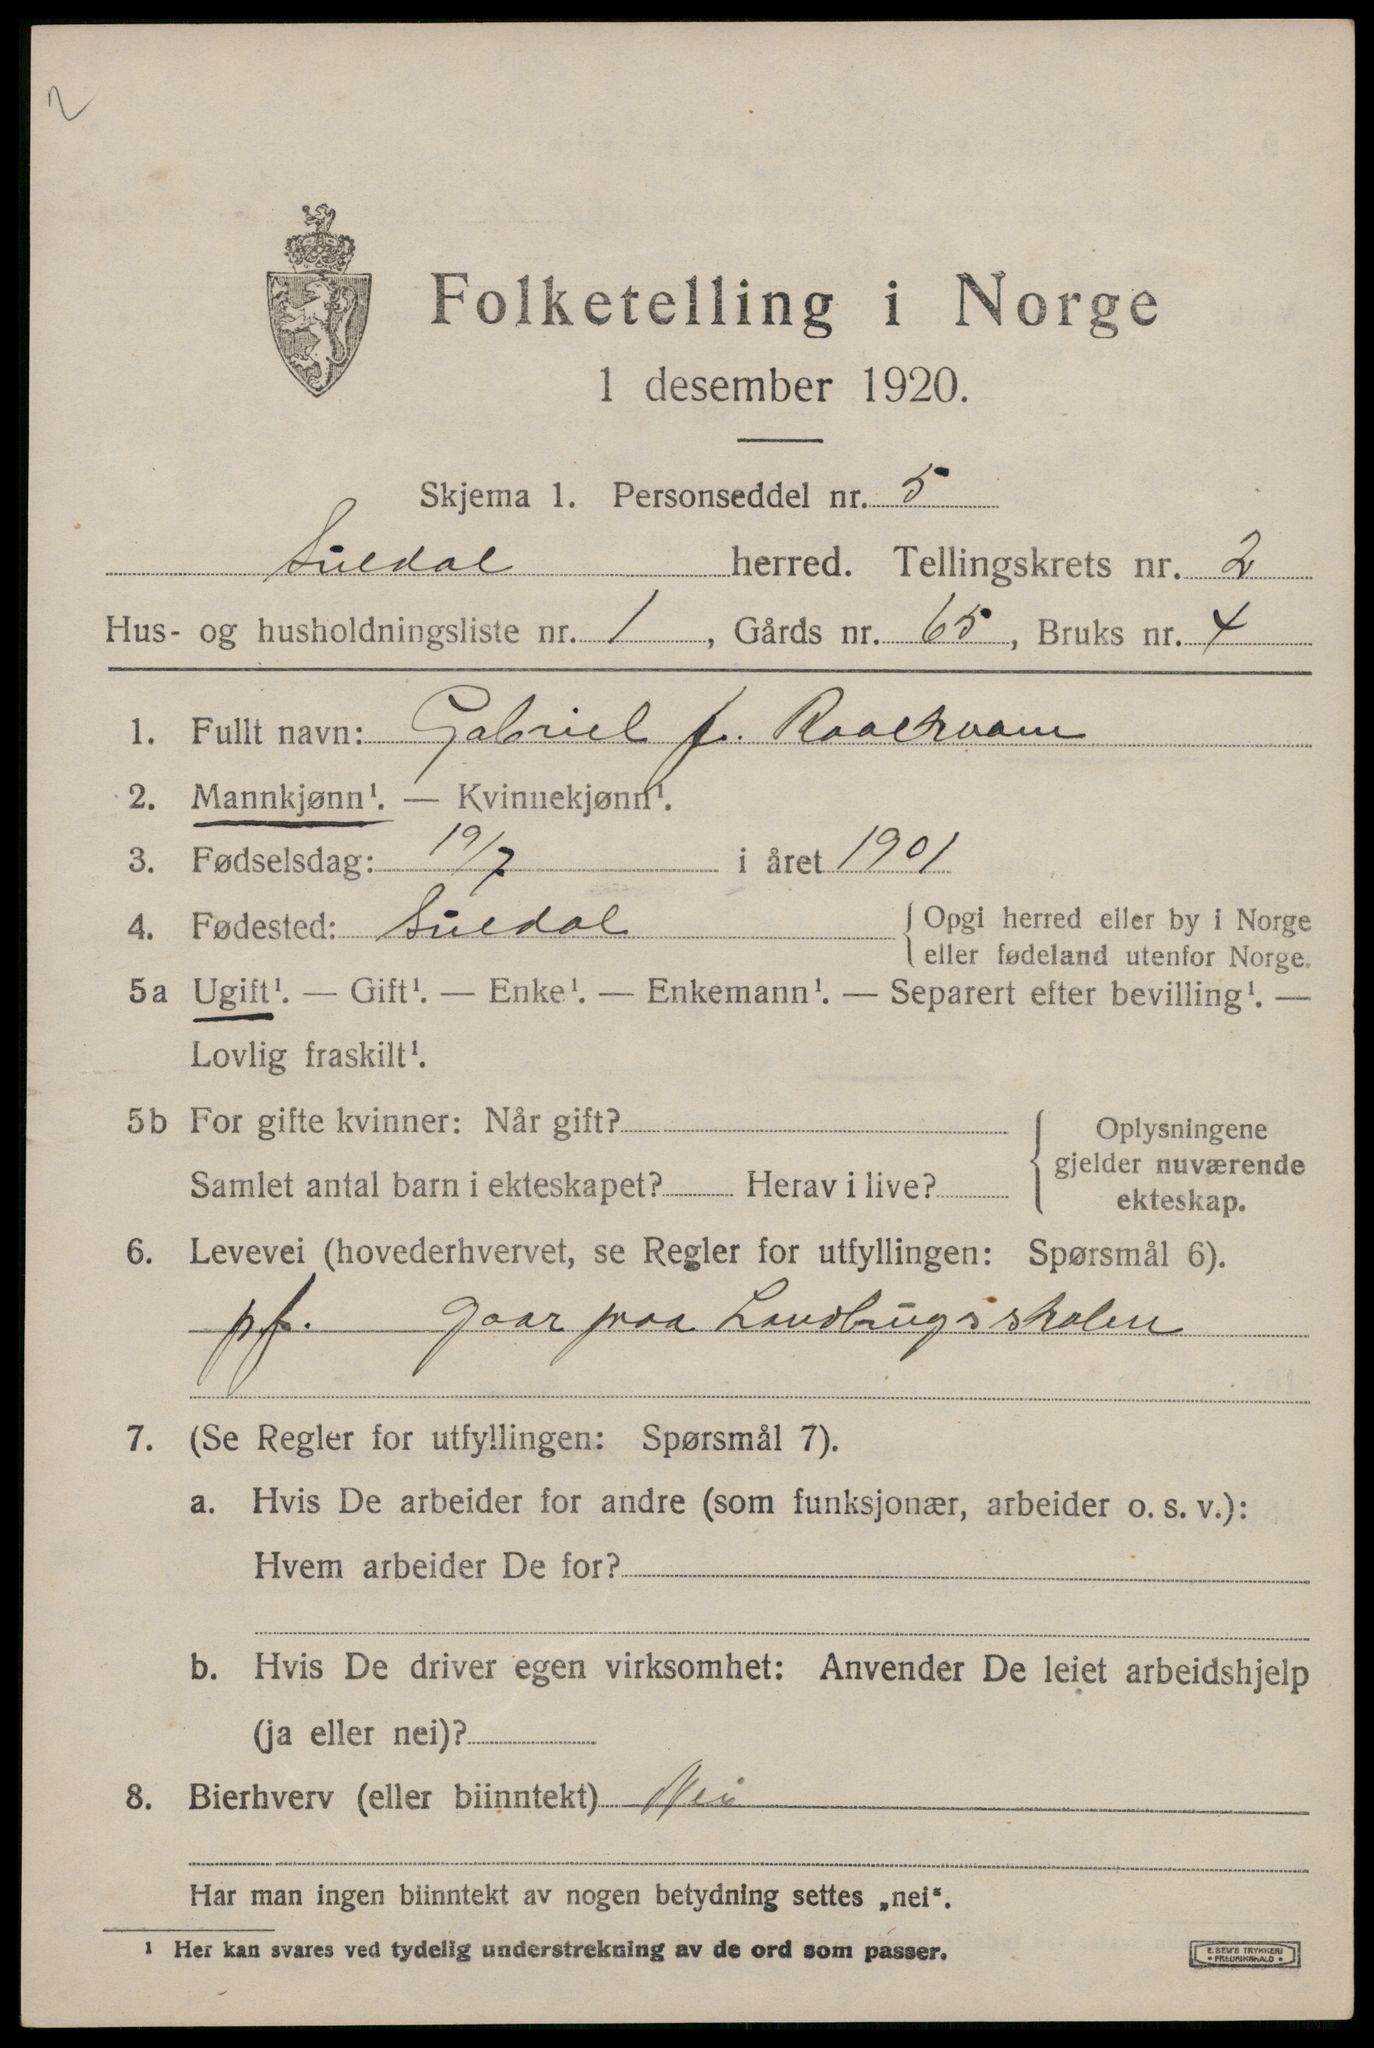 2
Folketelling i Norge
1 desember 1920.
Skjema 1. Personseddel nr. 5
Suldal herred. Tellingskrets nr. 2
Hus- og husholdningsliste nr. 1, Gårds nr. 65, Bruks nr. 4
1. Fullt navn: Gabriel J. Raaekvam
2. Mannkjønn¹. — Kvinnekjønn¹.
3. Fødselsdag: 19/7 i året 1901
4. Fødested: Suldal { Opgi herred eller by i Norge
eller fødeland utenfor Norge.
5a Ugift¹. — Gift¹. — Enke¹. — Enkemann¹. — Separert efter bevilling¹. —
Lovlig fraskilt¹.
5b For gifte kvinner: Når gift?
Samlet antal barn i ekteskapet? Herav i live?
Oplysningene
gjelder nuværende
ekteskap.
6. Levevei (hovederhvervet, se Regler for utfyllingen: Spørsmål 6).
pf. gaar paa Landbrugsskolen
7. (Se Regler for utfyllingen: Spørsmål 7).
a. Hvis De arbeider for andre (som funksjonær, arbeider o. s. v.):
Hvem arbeider De for?
b. Hvis De driver egen virksomhet: Anvender De leiet arbeidshjelp
(ja eller nei)?
8. Bierhverv (eller biinntekt) Nei
Har man ingen biinntekt av nogen betydning settes „nei“.
¹ Her kan svares ved tydelig understrekning av de ord som passer.
E. SEM'S TRYKKERI
• FREDRIKSHALD •